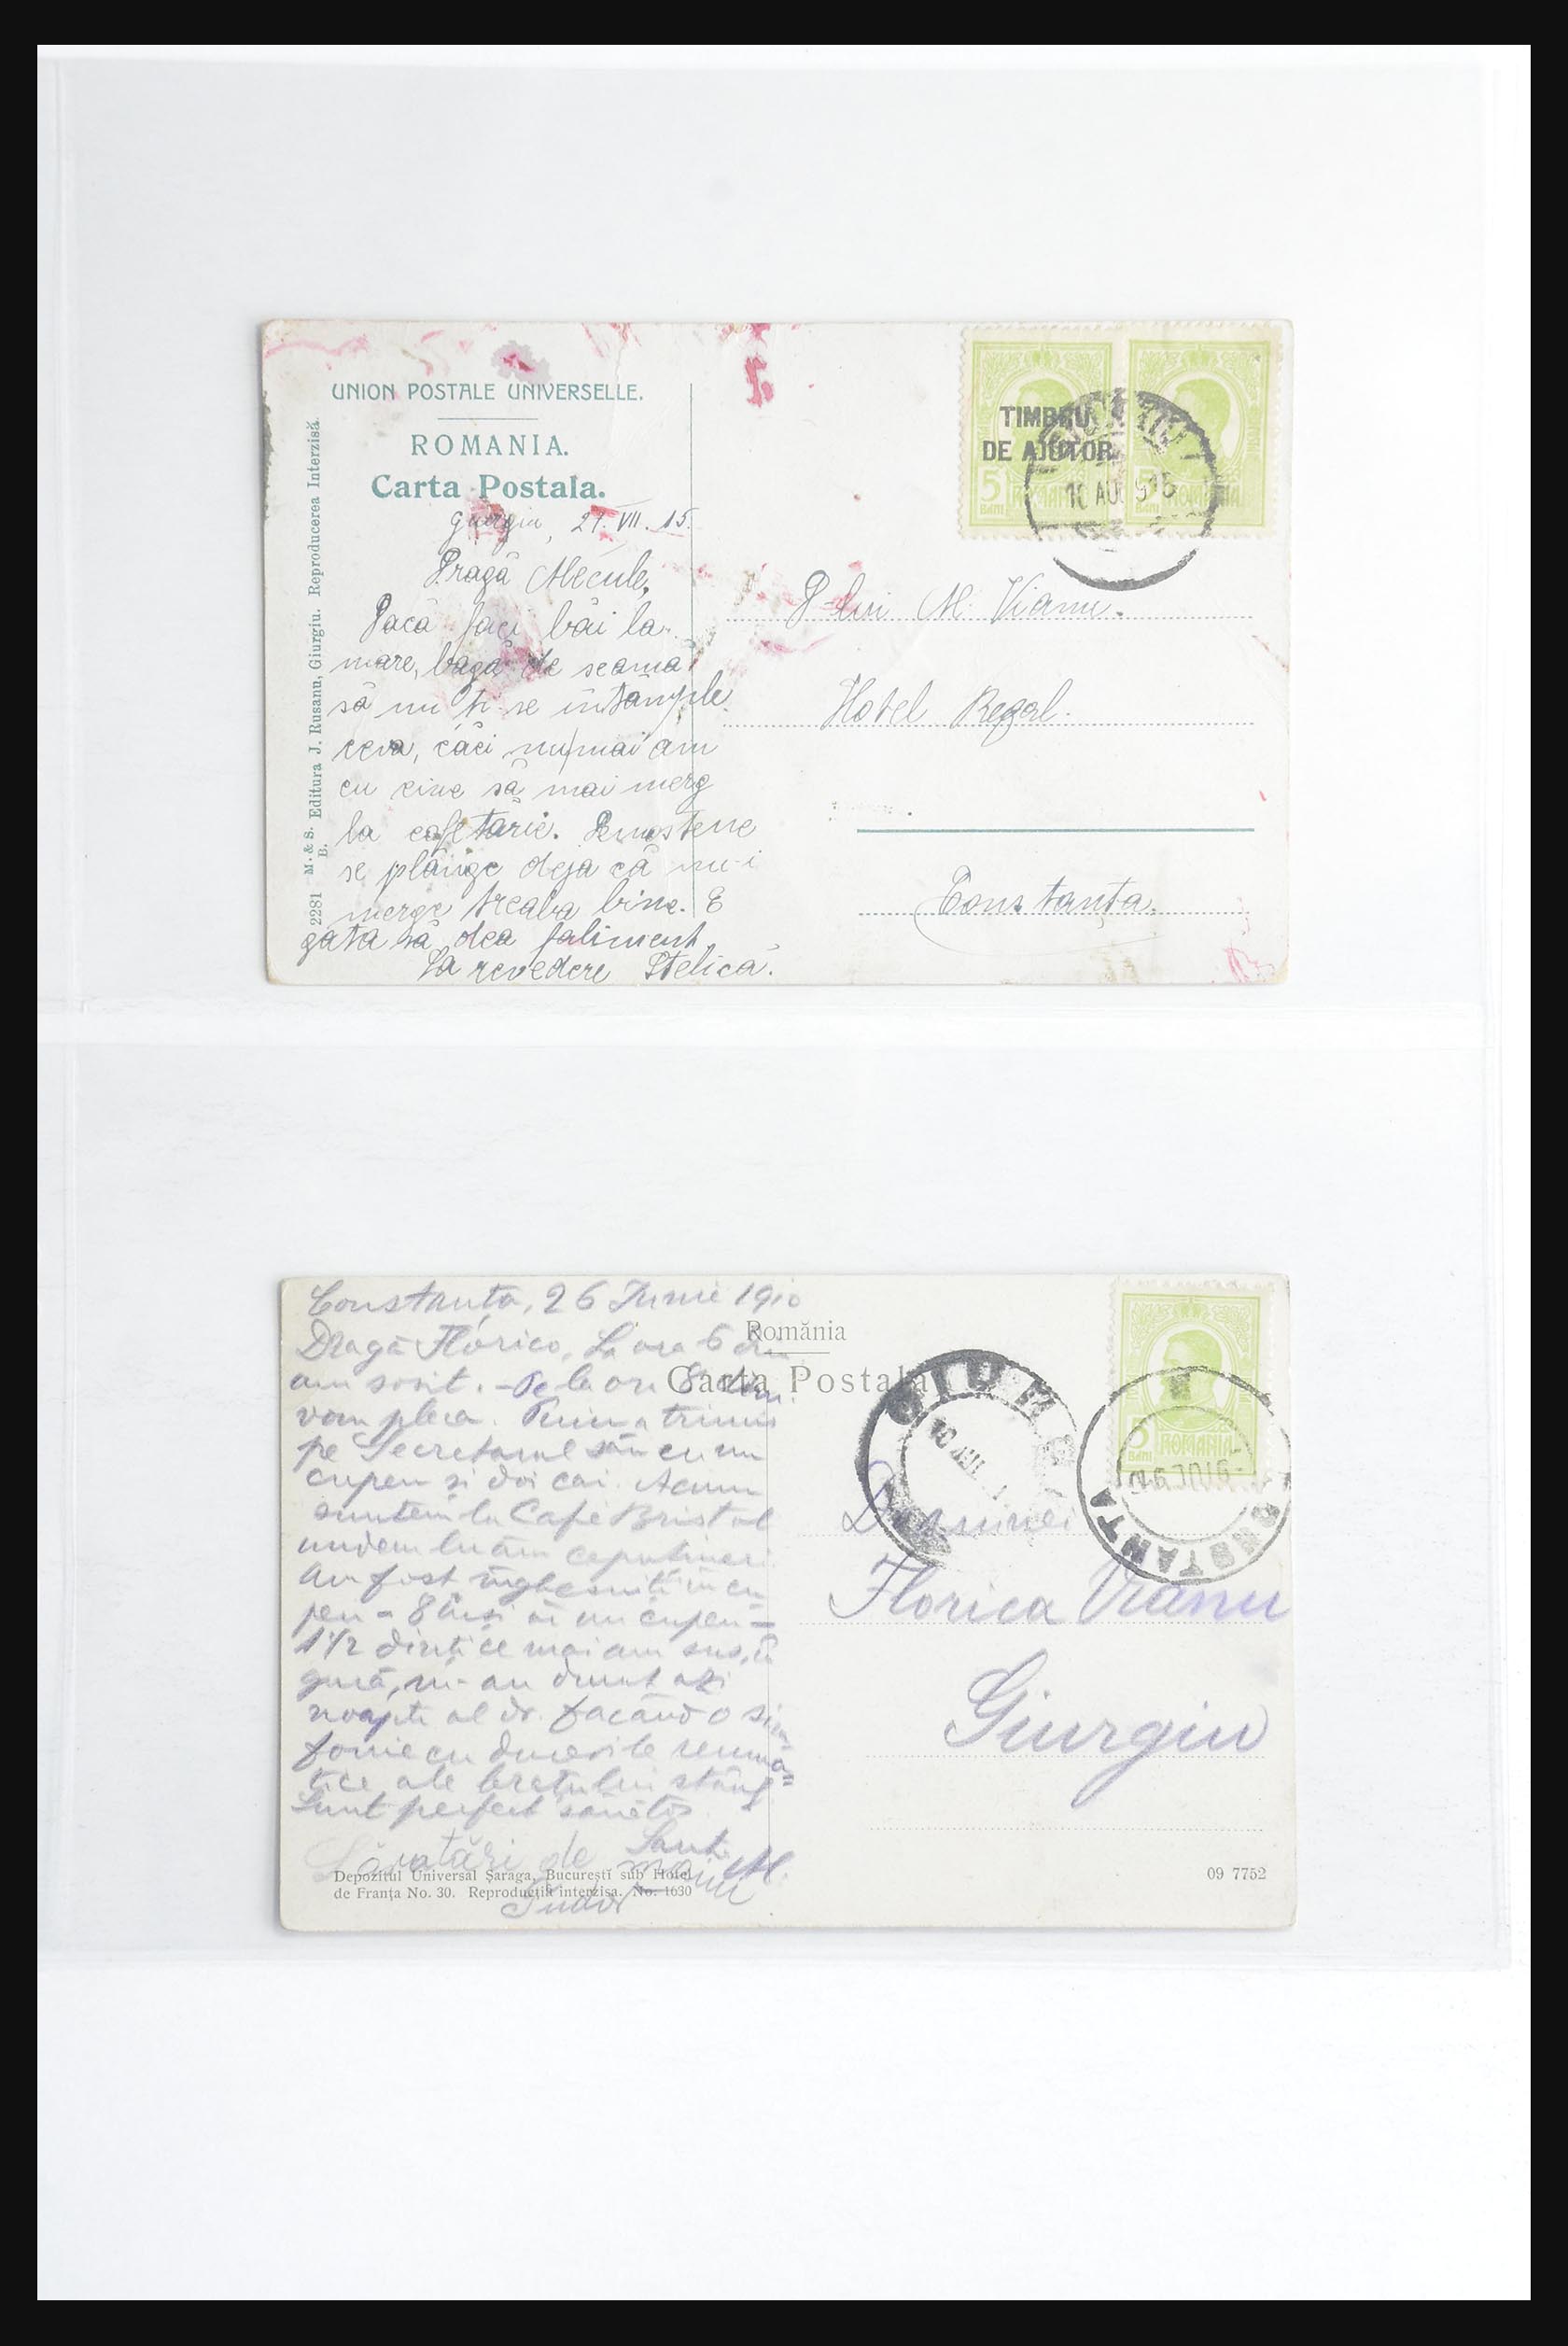 UNION POSTALE UNIVERSELLE.
ROMANIA.
Carta Postala.
2281 M. & S. B. Editura J. Rusanu, Giurgiu. Reproducerea Interzisă.
Giurgiu, 27. VII. 15.
Dragă Mecule,
Dacă faci băi la
mare, bagă de seamă
să nu ți se întâmple
ceva, căci nu mai am
cu cine să mai merg
la cofetărie. Demostene
se plânge deja că nu-i
merge treaba bine. E
gata să dea faliment.
La revedere Stelică.
TIMBRU
DE AJUTOR
5 BANI ROMANIA
5 BANI ROMANIA
10 AUG 915
D-lui M. Vianu.
Hotel Regal.
Constanța.
Constanța, 26 Iunie 1910
Dragă Florico, La ora 6 dim
am sosit. - De la ora 8 dim.
vom pleca. a trimis
pe Secretarul său cu un
cupeu și doi cai. Acum
suntem la Cafe Bristol
unde luăm
Am fost înghesuiți în cu
peu - 8 inși în un cupeu -
1 1/2 dinți ce mai am sus, în
gură, m-au durut azi
noapte al dr. făcând o sim
fonie cu durerile reumă=
tice ale brațului stâng
Sunt perfect sănătos
Sărutări de
Tudor
M.
România
Carta Postala
5 BANI ROMANIA
GIURG
CONSTANTA
Domnei
Florica Vianu
Giurgiu
Depozitul Universal Șaraga, București sub Hotel
de Franța No. 30. Reproducția interzisa. No. 1630
09 7752